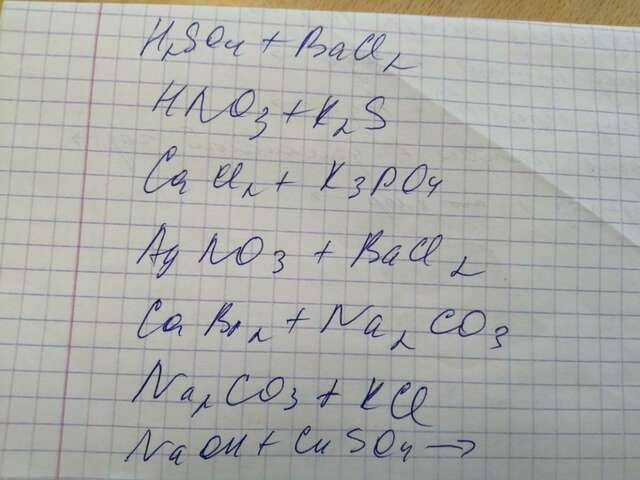 H₂SO₄ + BaCl₂
HNO₃ + K₂S
CaCl₂ + K₃PO₄
AgNO₃ + BaCl₂
CaBr₂ + Na₂CO₃
Na₂CO₃ + KCl
NaOH + CuSO₄ →